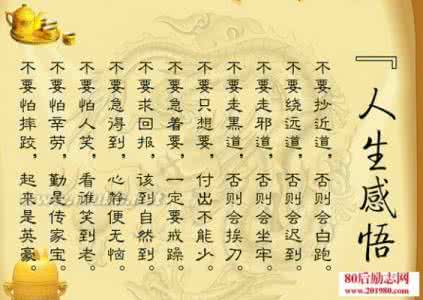 『人生感悟
不要抄近道，否则会白跑。
不要绕远道，否则会迟到。
不要走邪道，否则会坐牢。
不要走黑道，否则会挨刀。
不要只想要，付出不能少。
不要急着要，一定要戒躁。
不要求回报，该到自然到。
不要急得到，心静便无恼。
不要怕人笑，看谁笑到老。
不要怕辛劳，勤是传家宝。
不要怕摔跤，起来是英豪。
80后励志网
www.201980.com